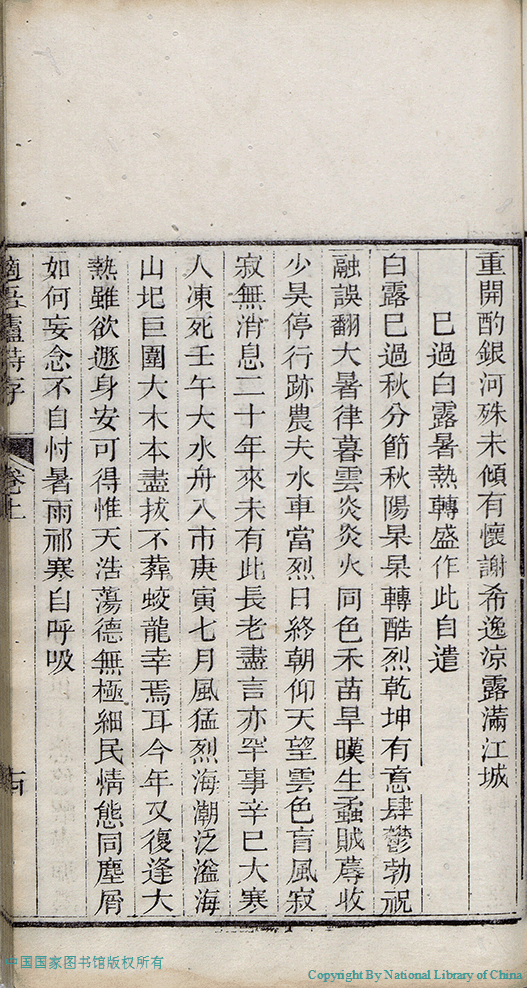 重開酌銀河殊未傾有懷謝希逸涼露滿江城
巳過白露暑熱轉盛作此自遣
白露巳過秋分節秋陽杲杲轉酷烈乾坤有意肆鬱勃祝
融誤翻大暑律暮雲炎炎火同色禾苗旱暵生蟊賊蓐收
少昊停行跡農夫水車當烈日終朝仰天望雲色盲風寂
寂無消息二十年來未有此長老盡言亦罕事辛巳大寒
人凍死壬午大水舟入市庚寅七月風猛烈海潮泛溢海
山圯巨圍大木本盡拔不葬蛟龍幸焉耳今年又復逢大
熱雖欲遯身安可得惟天浩蕩德無極細民情態同塵屑
如何妄念不自忖暑雨祁寒自呼吸
適吾廬詩存
卷上
中国国家图书馆版权所有
Copyright By National Library of China